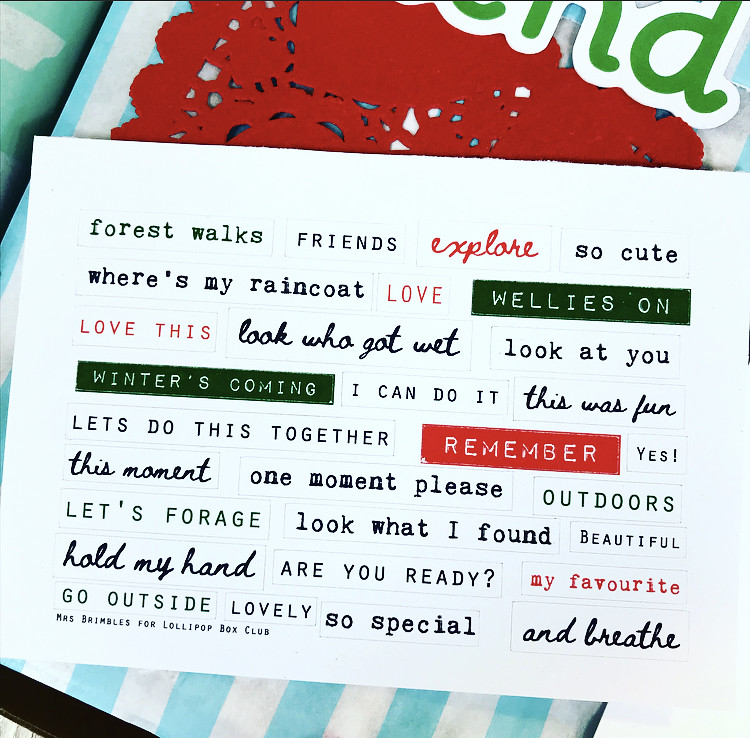 end
forest walks FRIENDS explore so cute
where's my raincoat LOVE WELLIES ON
LOVE THIS look who got wet look at you
WINTER'S COMING I CAN DO IT this was fun
LETS DO THIS TOGETHER REMEMBER YES!
this moment one moment please OUTDOORS
LET'S FORAGE look what I found BEAUTIFUL
hold my hand ARE YOU READY? my favourite
GO OUTSIDE LOVELY so special and breathe
MRS BRIMBLES FOR LOLLIPOP BOX CLUB